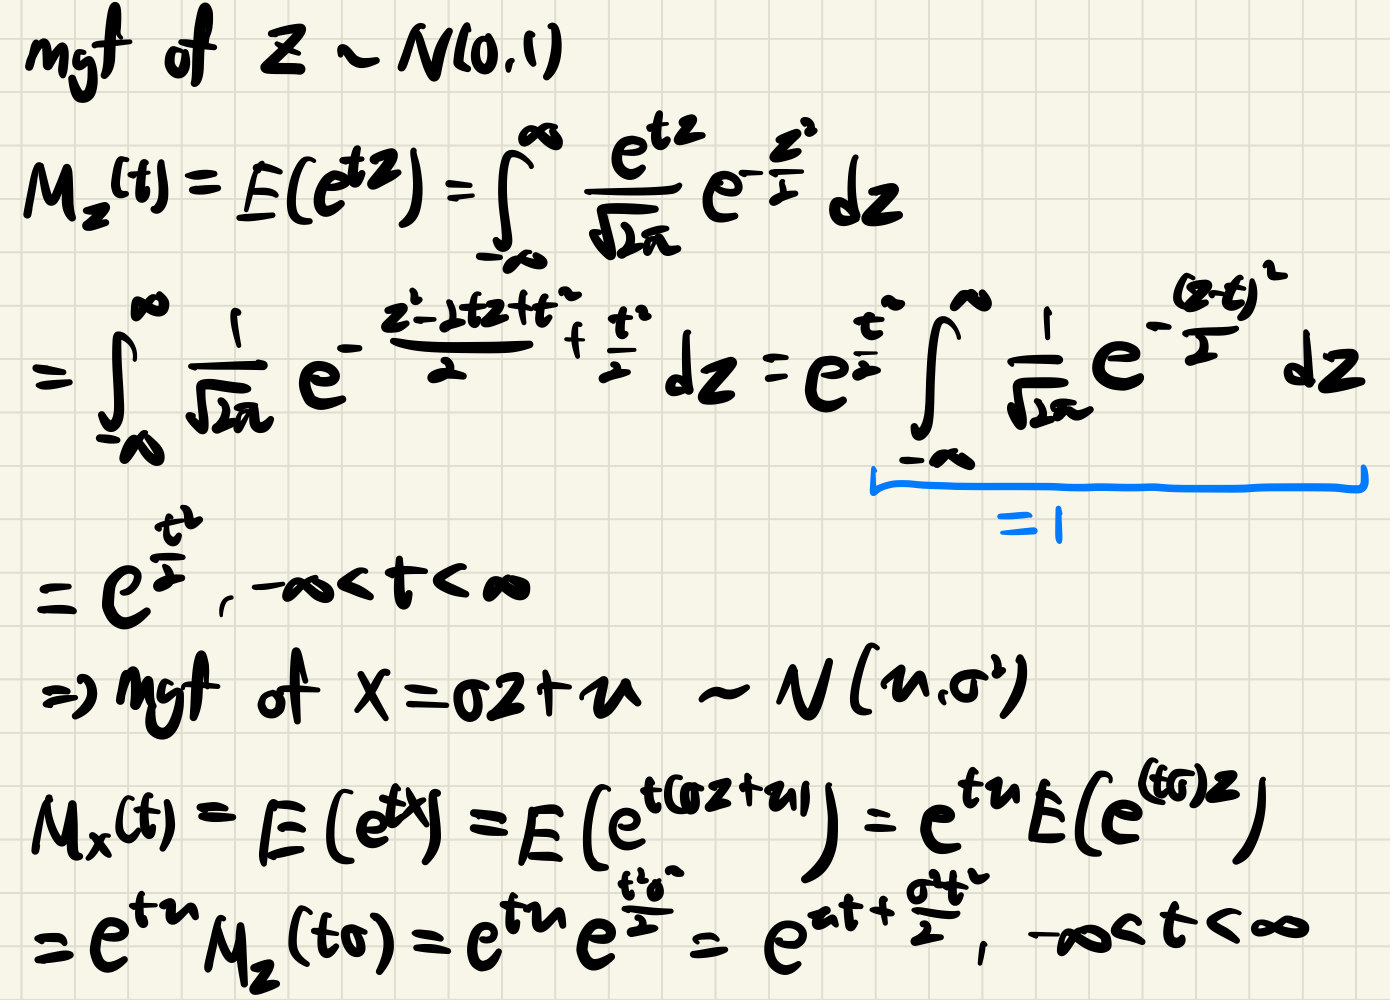 mgf of Z ~ N(0,1)
M_Z(t) = E(e^{tZ}) = ∫_{-∞}^{∞} \frac{e^{tz}}{√(2π)} e^{-\frac{z²}{2}} dz
= ∫_{-∞}^{∞} \frac{1}{√(2π)} e^{-\frac{z²-2tz+t²}{2} + \frac{t²}{2}} dz = e^{\frac{t²}{2}} ∫_{-∞}^{∞} \frac{1}{√(2π)} e^{-\frac{(z-t)²}{2}} dz
= 1
= e^{\frac{t²}{2}}, -∞ < t < ∞
⇒ mgf of X = σZ + μ ~ N(μ, σ²)
M_X(t) = E(e^{tX}) = E(e^{t(σZ+μ)}) = e^{tμ} E(e^{(tσ)Z})
= e^{tμ} M_Z(tσ) = e^{tμ} e^{\frac{t²σ²}{2}} = e^{μt + \frac{σ²t²}{2}}, -∞ < t < ∞